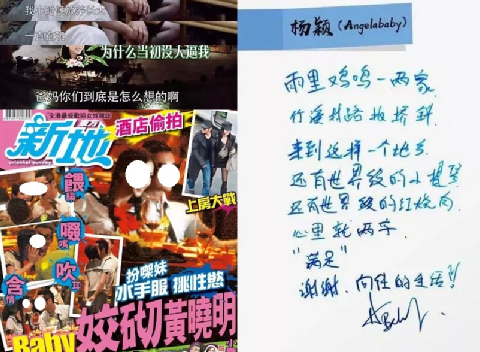 一直
为什么当初没人逼我
爸妈你们到底是怎么想的啊
全港最受歡迎女性雜誌
新地
oriental sunday
酒店偷拍
上房大戰
餵
啜嘴
吹耳
含情
扮喫妹
水手服 挑性慾
Baby 姣砌黃曉明
杨颖(Angelababy)
雨里鸡鸣一两家
竹溪村路板桥斜
来到这样一个地方
还有世界级的小提琴
还有世界级的红烧肉
心里就两字
"满足"
谢谢,向往的生活!